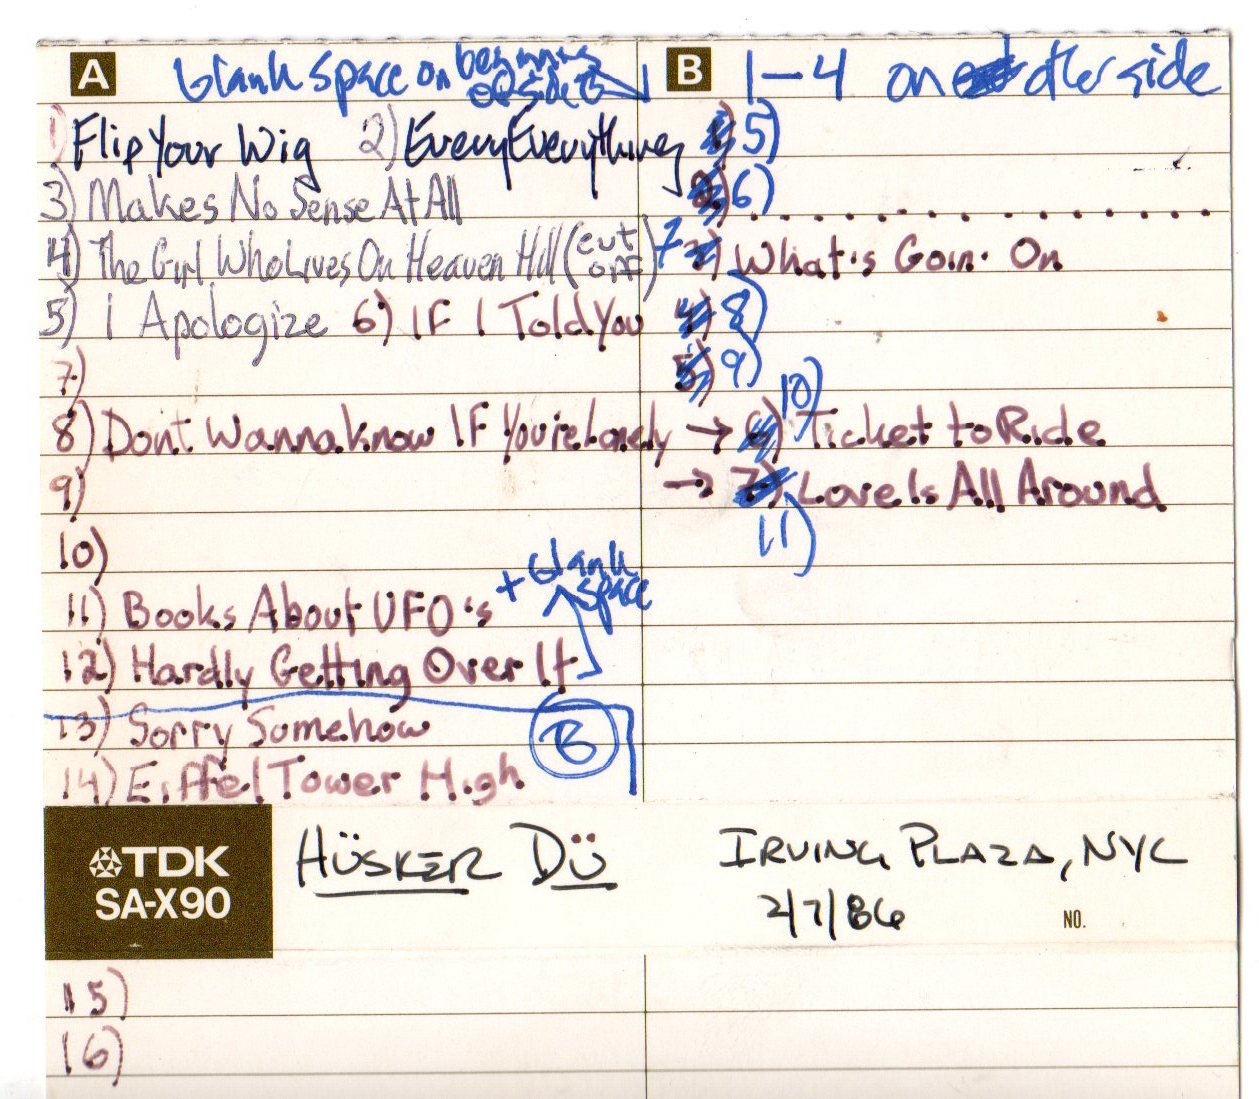 A blank space on beginning of side B
B 1-4 on other side
1) Flip Your Wig 2) Every Everything
3) Makes No Sense At All
4) The Girl Who Lives On Heaven Hill (cut off)
5) I Apologize 6) IF I Told You
7)
8) Dont Wanna Know IF You're Lonely →
9)
10)
11) Books About UFO's + blank space
12) Hardly Getting Over It
13) Sorry Somehow B
14) Eiffel Tower High
5)
6)
7) What's Goin' On
8)
9)
10) Ticket to Ride
→ 11) Love Is All Around
TDK HÜSKER DÜ IRVING PLAZA, NYC
SA-X90 2/7/86 NO.
15)
16)